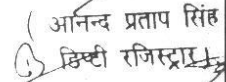 ( आनन्द प्रताप सिंह
डिप्टी रजिस्ट्रार